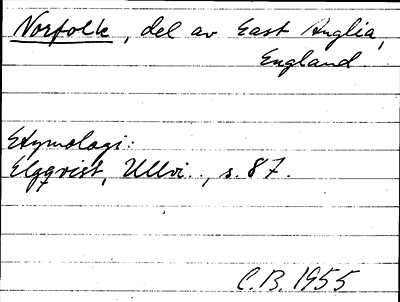 Norfolk, del av East Anglia,
England
Etymologi:
Elgqvist, Ullvi.., s. 87.
C.B. 1955